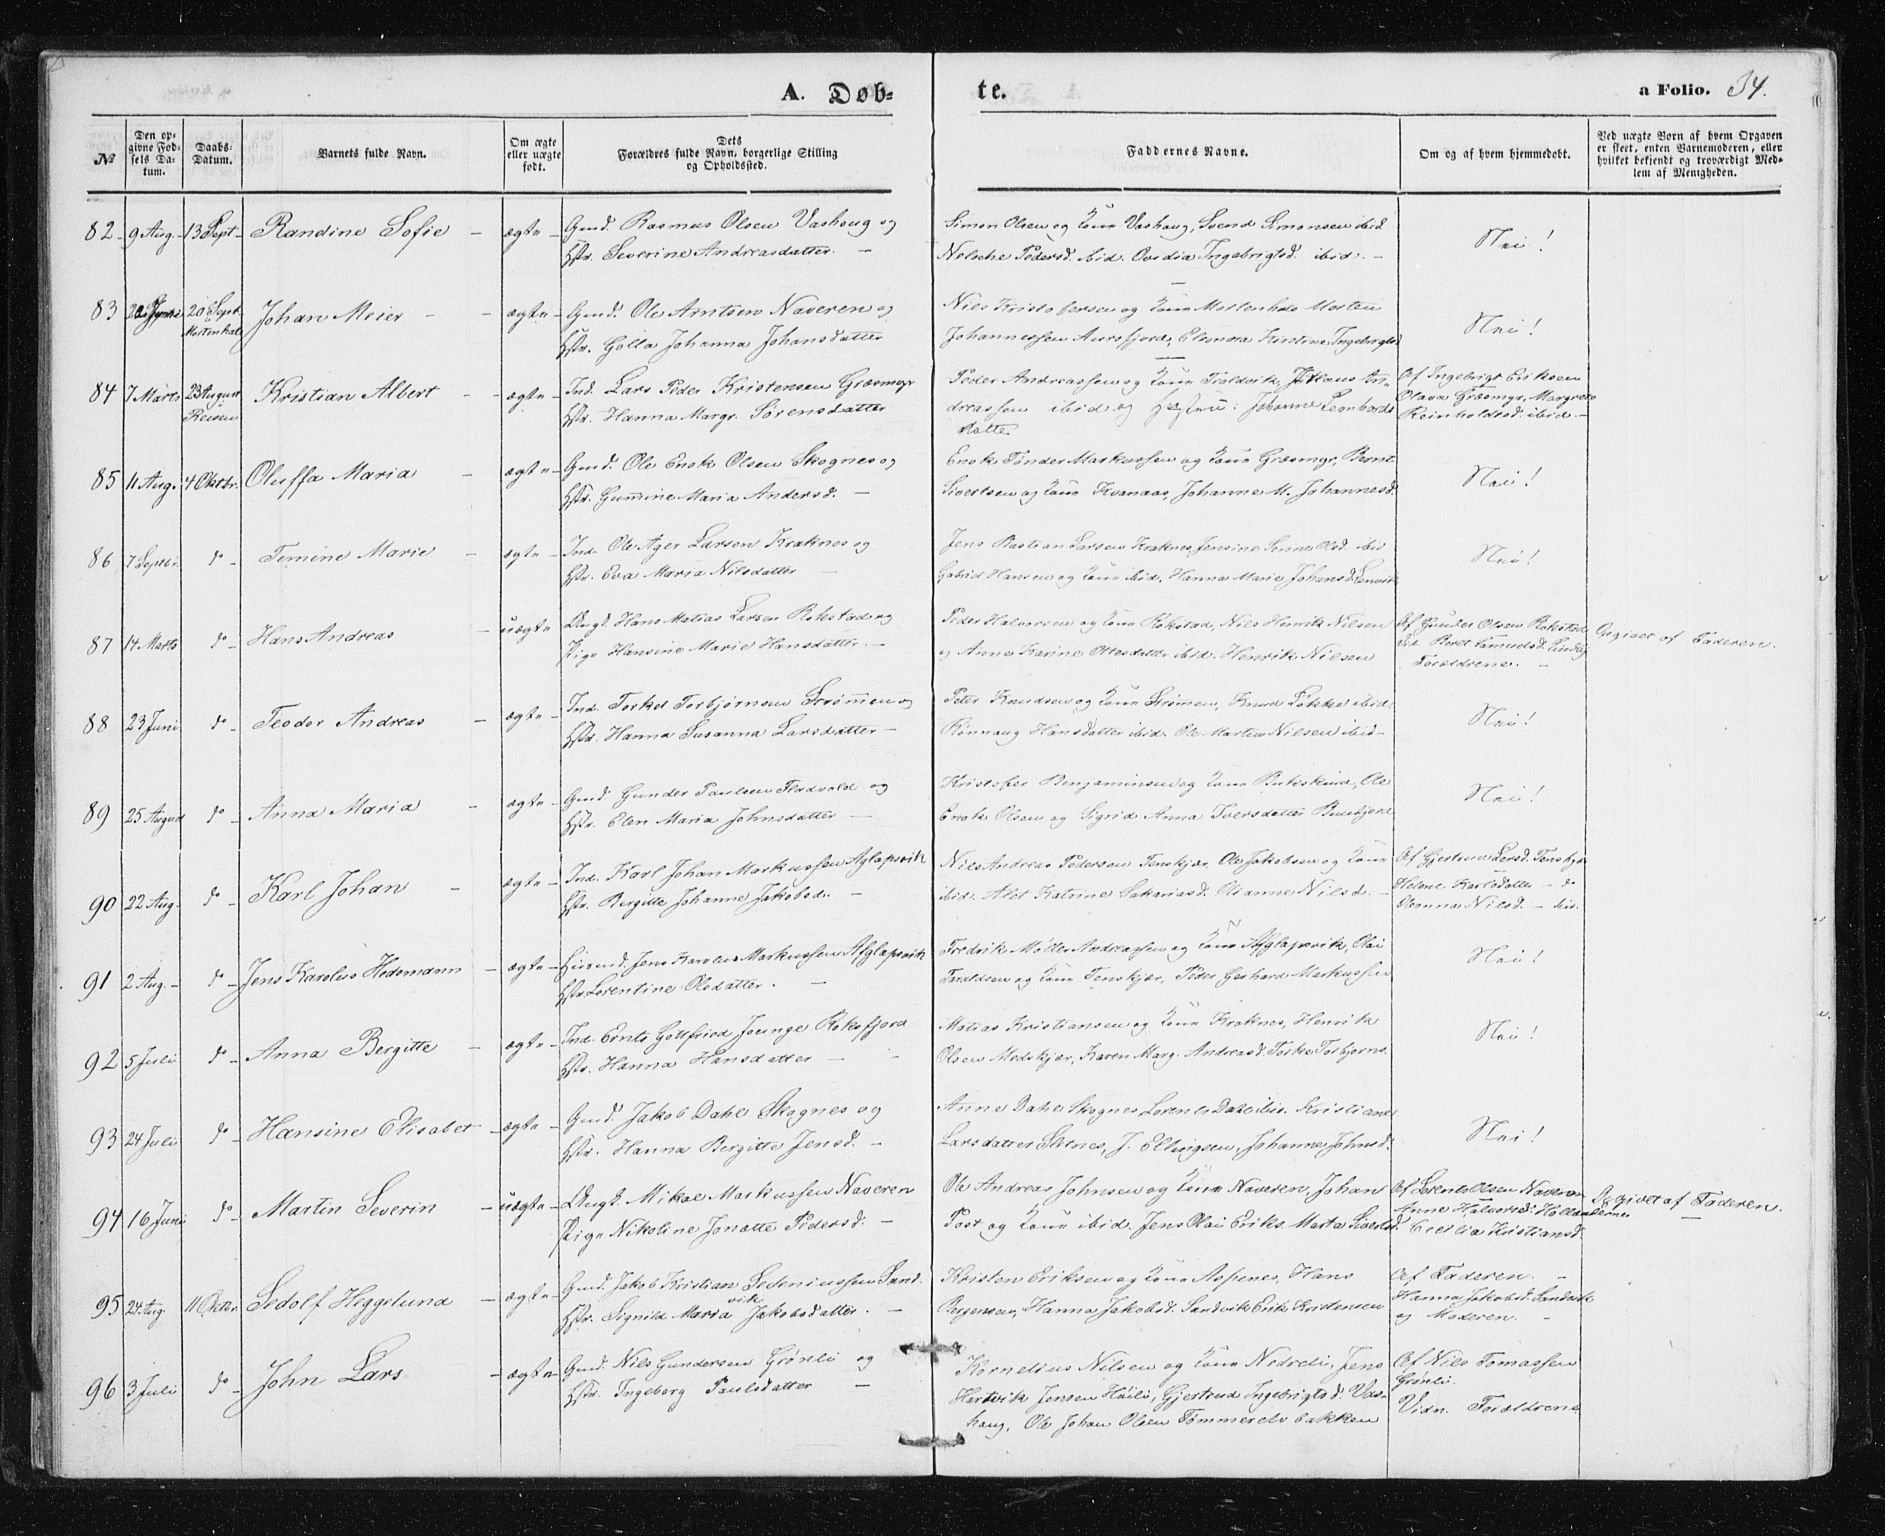 A. Døb-
te.
a Folio. 34.
№
Den opgivne Fødsels Datum.
Daabs-Datum.
Barnets fulde Navn.
Om ægte eller uægte født.
Dets Forældres fulde Navn, borgerlige Stilling og Opholdssted.
Faddernes Navne.
Om og af hvem hjemmedøbt.
Ved uægte Børn af hvem Opgaven er skeet, enten Barnemoderen, eller hvilket bekjendt og troværdigt Medlem af Menigheden.
82 9 Aug. 13 Sept Randine Sofie ægte Gmd. Rasmus Olsen Vashaug og
Hstr. Severine Andreasdatter.
Simon Olsen og Kone Vashaug, Svend Simonsen ibid
Pedersd. ibid. Ovidia Ingebrigtsd. ibid.
Nei!
83 20 Sept Mortenhals Johan Meier ægte Gmd. Ole Arntsen Naveren og
Hstr. Golla Johanna Johansdatter
Nils Kristofersen og Kone Mortenhals Morten
Johannessen Aursfjord, Eleonora Kristine Ingebrigtsd
Nei!
84 7 Marts 23 August Reisen Kristian Albert ægte Ind. Lars Peder Kristensen Græsmyr
Hstr. Hanna Margr. Sørensdatter
Peder Andreassen og Kone Troldvik, Johans An-
dreassen ibid og Hustru. Johanne Leonhards
datter
Af Ingebrigt Eriksen
Olava Græsmyr, Margrete
Reinholdsd. ibid.
85 11 Aug. 4 Oktbr. Oluffa Maria ægte Gmd. Ole Enok Olsen Skognes og
Hstr. Gunnine Maria Andersd.
Enok Tønder Markussen og Kone Græsmyr, Bernt
Sivertsen og Kone Kvanaas, Johanne M. Johannesd.
Nei!
86 7 Septbr. do Temine Marie ægte Ind. Ole Ager Larsen Kraknes og
Hstr. Eva Maria Nilsdatter
Jens Bastian Larsen Kraknes, Jensine Olsd. ibid
Gabriel Hansen og Kone ibid. Hanna Marie Johansd. Lenvik
Nei!
87 14 Marts do Hans Andreas uægte Ungk. Hans Matias Larsen Rokstad og
Pige Hansine Marie Hansdatter.
Peder Halvorsen og Kone Rokstad, Nils Henrik Nilsen
og Anne Karine Ottesdatter ibid. Henrik Nilsen
Af Gunder Olsen Rokstad
Beret Samuelsd.
Forældrene.
Opgivet af Faderen.
88 23 Juni do Teodor Andreas ægte Ind. Torkel Torbjørnsen Strømmen og
Hstr. Hanna Susanna Larsdatter
Peter Knudsen og Kone Strømmen, Knud Løkke ibid.
Rønnaug Hansdatter ibid. Ole Martin Nilsen ibid
Nei!
89 25 August do Anna Maria ægte Gmd. Gunder Paulsen og
Hstr. Elen Maria Johnsdatter
Kristofer Benjaminsen og Kone Bukskind, Ole
Enok Olsen og Sigrid Anna Iversdatter
Nei!
90 22 Aug. do Karl Johan ægte Ind. Karl Johan Markussen Aglapsvik
Hstr. Bergitte Johanne Jakobsd.
Nils Andreas Pedersen Tenskjær, Ole Jakobsen og Kone
ibid. Alet Katrine Sakariasd. Olianne Nilsd.
Af Gjertrud Larsd. Tenskjær
Helene Karlsdatter do
Nilsd. ibid.
91 2 Aug. do Jens Karolus Hedemann ægte Huusmd. Jens Karolus Markussen Afglapsvik
Hstr. Lorentine Olsdatter.
Fredrik Møller Andreassen og Kone Afglapsvik, Olai
og Kone Tenskjær, Peder Gerhard Markussen
Nei!
92 5 Juli do Anna Bergitte ægte Ind. Ernts Gottfried Jounge Roksfjord
Hstr. Hanna Hansdatter
Matias Kristiansen og Kone Kraknes, Henrik
Olsen Medskjær, Karen Marg. Andreasd. Torbjørns.
Nei!
93 24 Juli do Hansine Elisabet ægte Gmd. Jakob Dahl Skognes og
Hstr. Hanna Bergitte Jensd.
Anne Dahl Skognes Lorents Dahl ibid. Kristiane
Larsdatter, J. Ellingsen, Johanne Johnsd.
Nei!
94 16 Juni do Martin Severin uægte Ungk. Mikal Markussen Naveren
Pige Nikoline Jonette Pedersd.
Ole Andreas Johnsen og Kone Naveren, Johan
Post og Kone ibid. Jens Olai Eriks. Marta Sivertsd.
Af Lorents Olsen Naveren
Anne Halvorsd.
Cecilia Kristiansd.
Opgivet af Faderen.
95 24 Aug. 11 Oktbr. Sedolf Heggelund ægte Gmd. Jakob Kristian Sedeniussen Sand-
vik
Hstr. Signild Maria Jakobsdatter.
Kristen Eriksen og Kone Aspenes, Hans
Hanna Jakobsd. Sandvik Erik Kristensen
Af Faderen.
Hanna Jakobsd. Sandvik
og Moderen.
96 3 Juli do John Lars ægte Gmd. Nils Gundersen Grønli og
Hstr. Ingeborg Paulsdatter
Kornelius Nilsen og Kone Nedreli, Jens
Hartvik Jensen Høili, Gjertrud Ingebrigtsd. Vas-
haug, Ole Johan Olsen Tømmerelvbakken
Af Nils Tomassen
Grønli.
Vidn. Forældrene